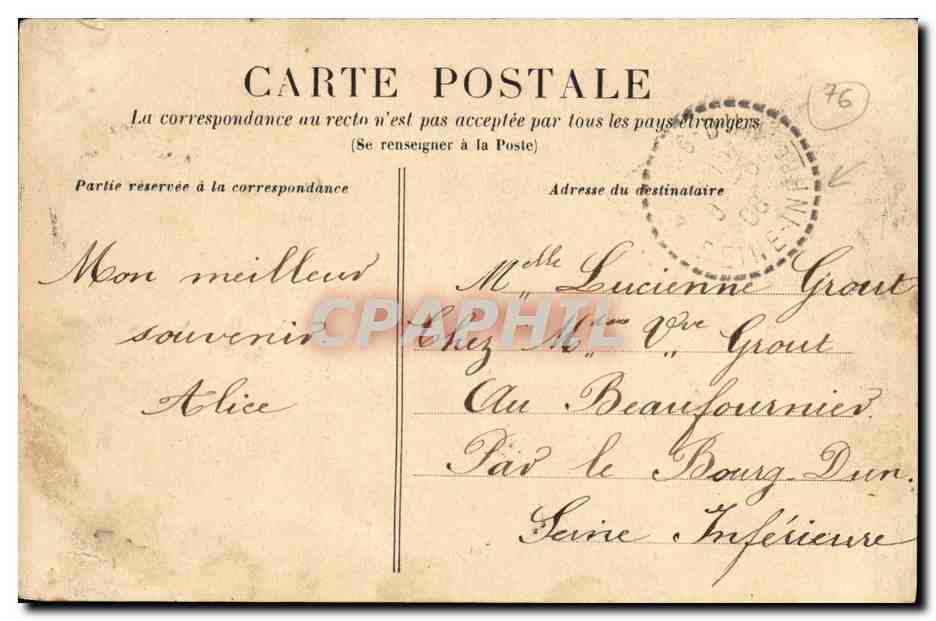 CARTE POSTALE
76
La correspondance au recto n'est pas acceptée par tous les pays étrangers
(Se renseigner à la Poste)
Partie réservée à la correspondance
Mon meilleur
souvenir
Alice
Adresse du destinataire
Melle Lucienne Grout
Chez Mdme Vve Grout
Au Beaufournier.
Par le Bourg-Dun.
Seine Inférieure
CPAPHIL